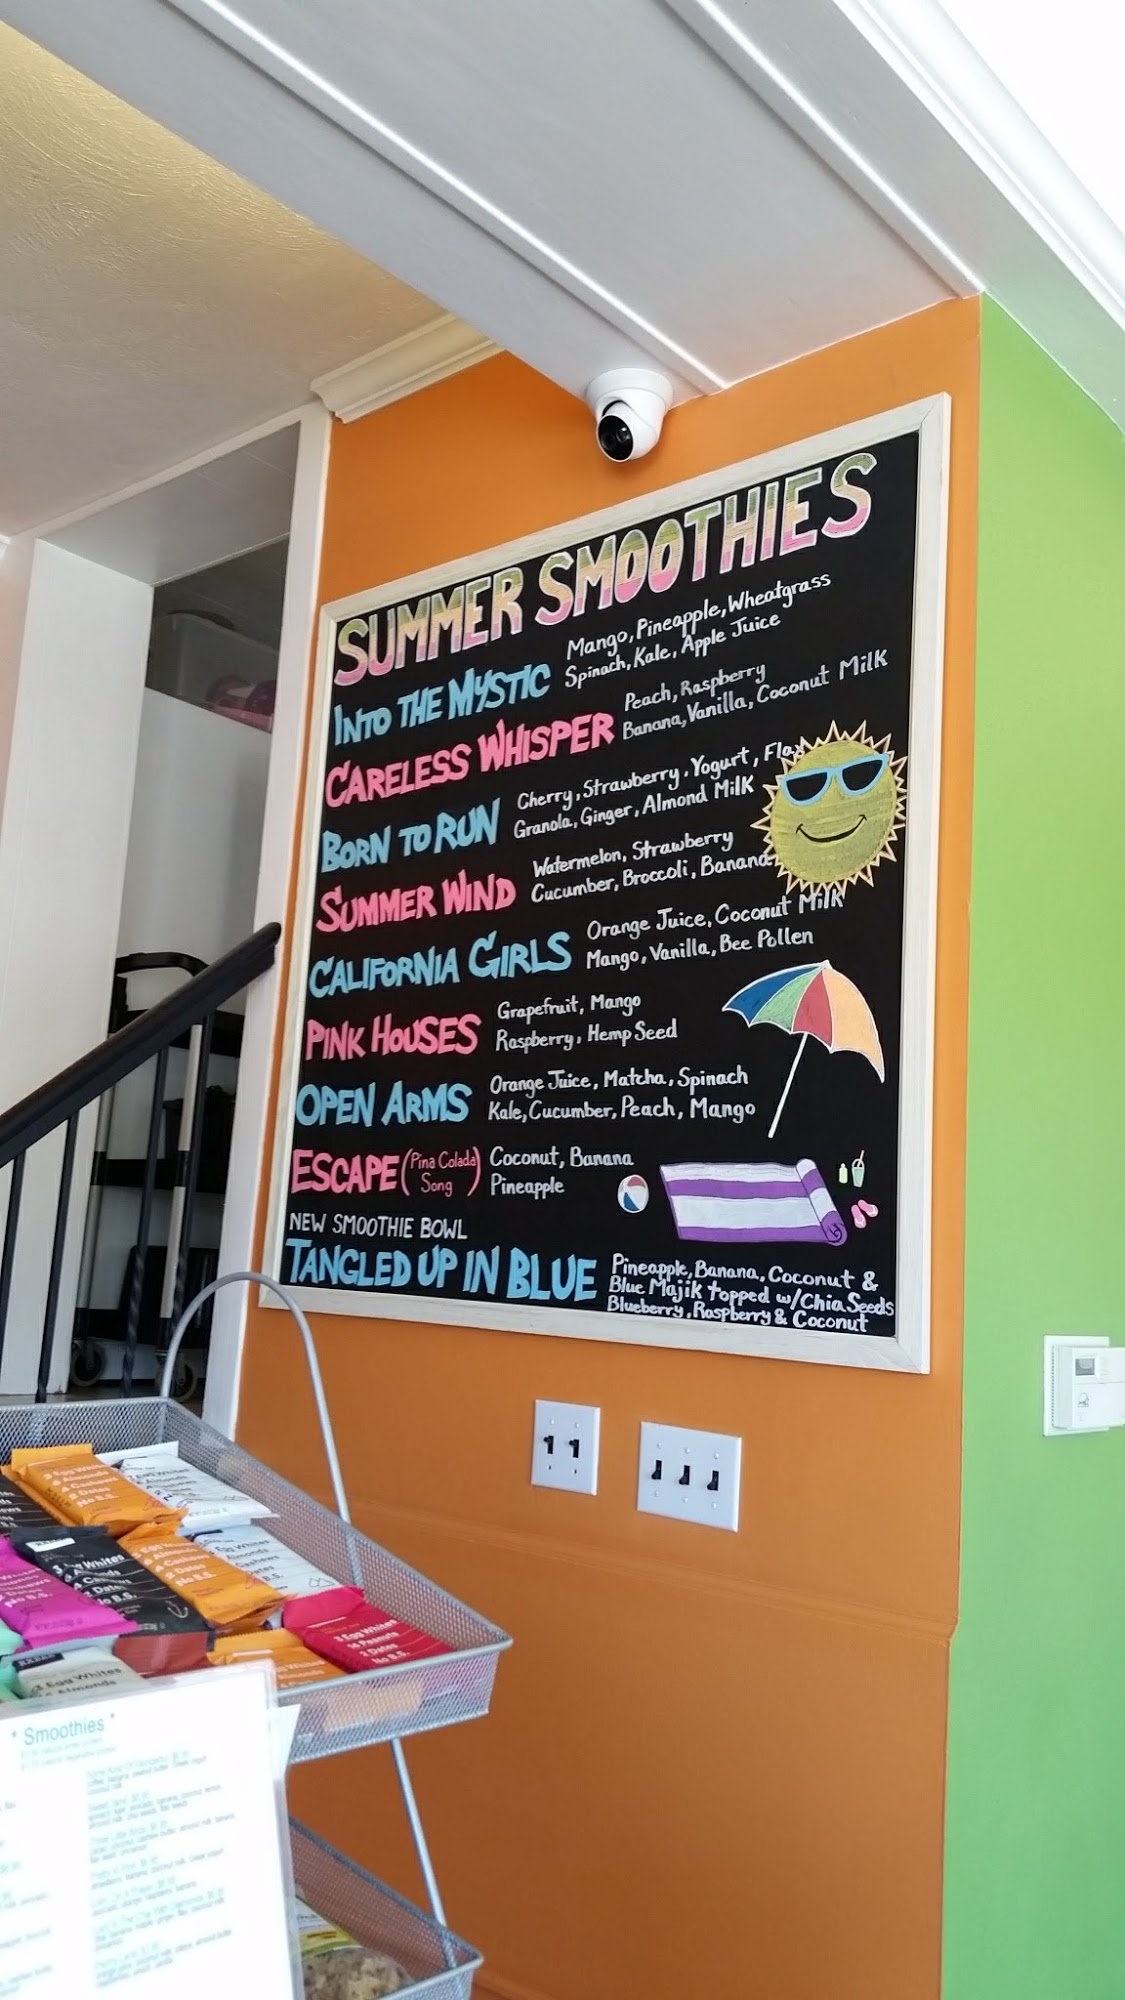 SUMMER SMOOTHIES
INTO THE MYSTIC
Mango, Pineapple, Wheatgrass
Spinach, Kale, Apple Juice
CARELESS WHISPER
Peach, Raspberry
Banana, Vanilla, Coconut Milk
BORN TO RUN
Cherry, Strawberry, Yogurt, Flax
Granola, Ginger, Almond Milk
SUMMER WIND
Watermelon, Strawberry
Cucumber, Broccoli, Banana
CALIFORNIA GIRLS
Orange Juice, Coconut Milk
Mango, Vanilla, Bee Pollen
PINK HOUSES
Grapefruit, Mango
Raspberry, Hemp Seed
OPEN ARMS
Orange Juice, Matcha, Spinach
Kale, Cucumber, Peach, Mango
ESCAPE (Pina Colada
Song)
Coconut, Banana
Pineapple
NEW SMOOTHIE BOWL
TANGLED UP IN BLUE
Pineapple, Banana, Coconut &
Blue Majik topped w/Chia Seeds
Blueberry, Raspberry & Coconut
3 Egg Whites
6 Almonds
4 Cashews
2 Dates
No B.S.
3 Egg Whites
14 Peanuts
2 Dates
No B.S.
* Smoothies *